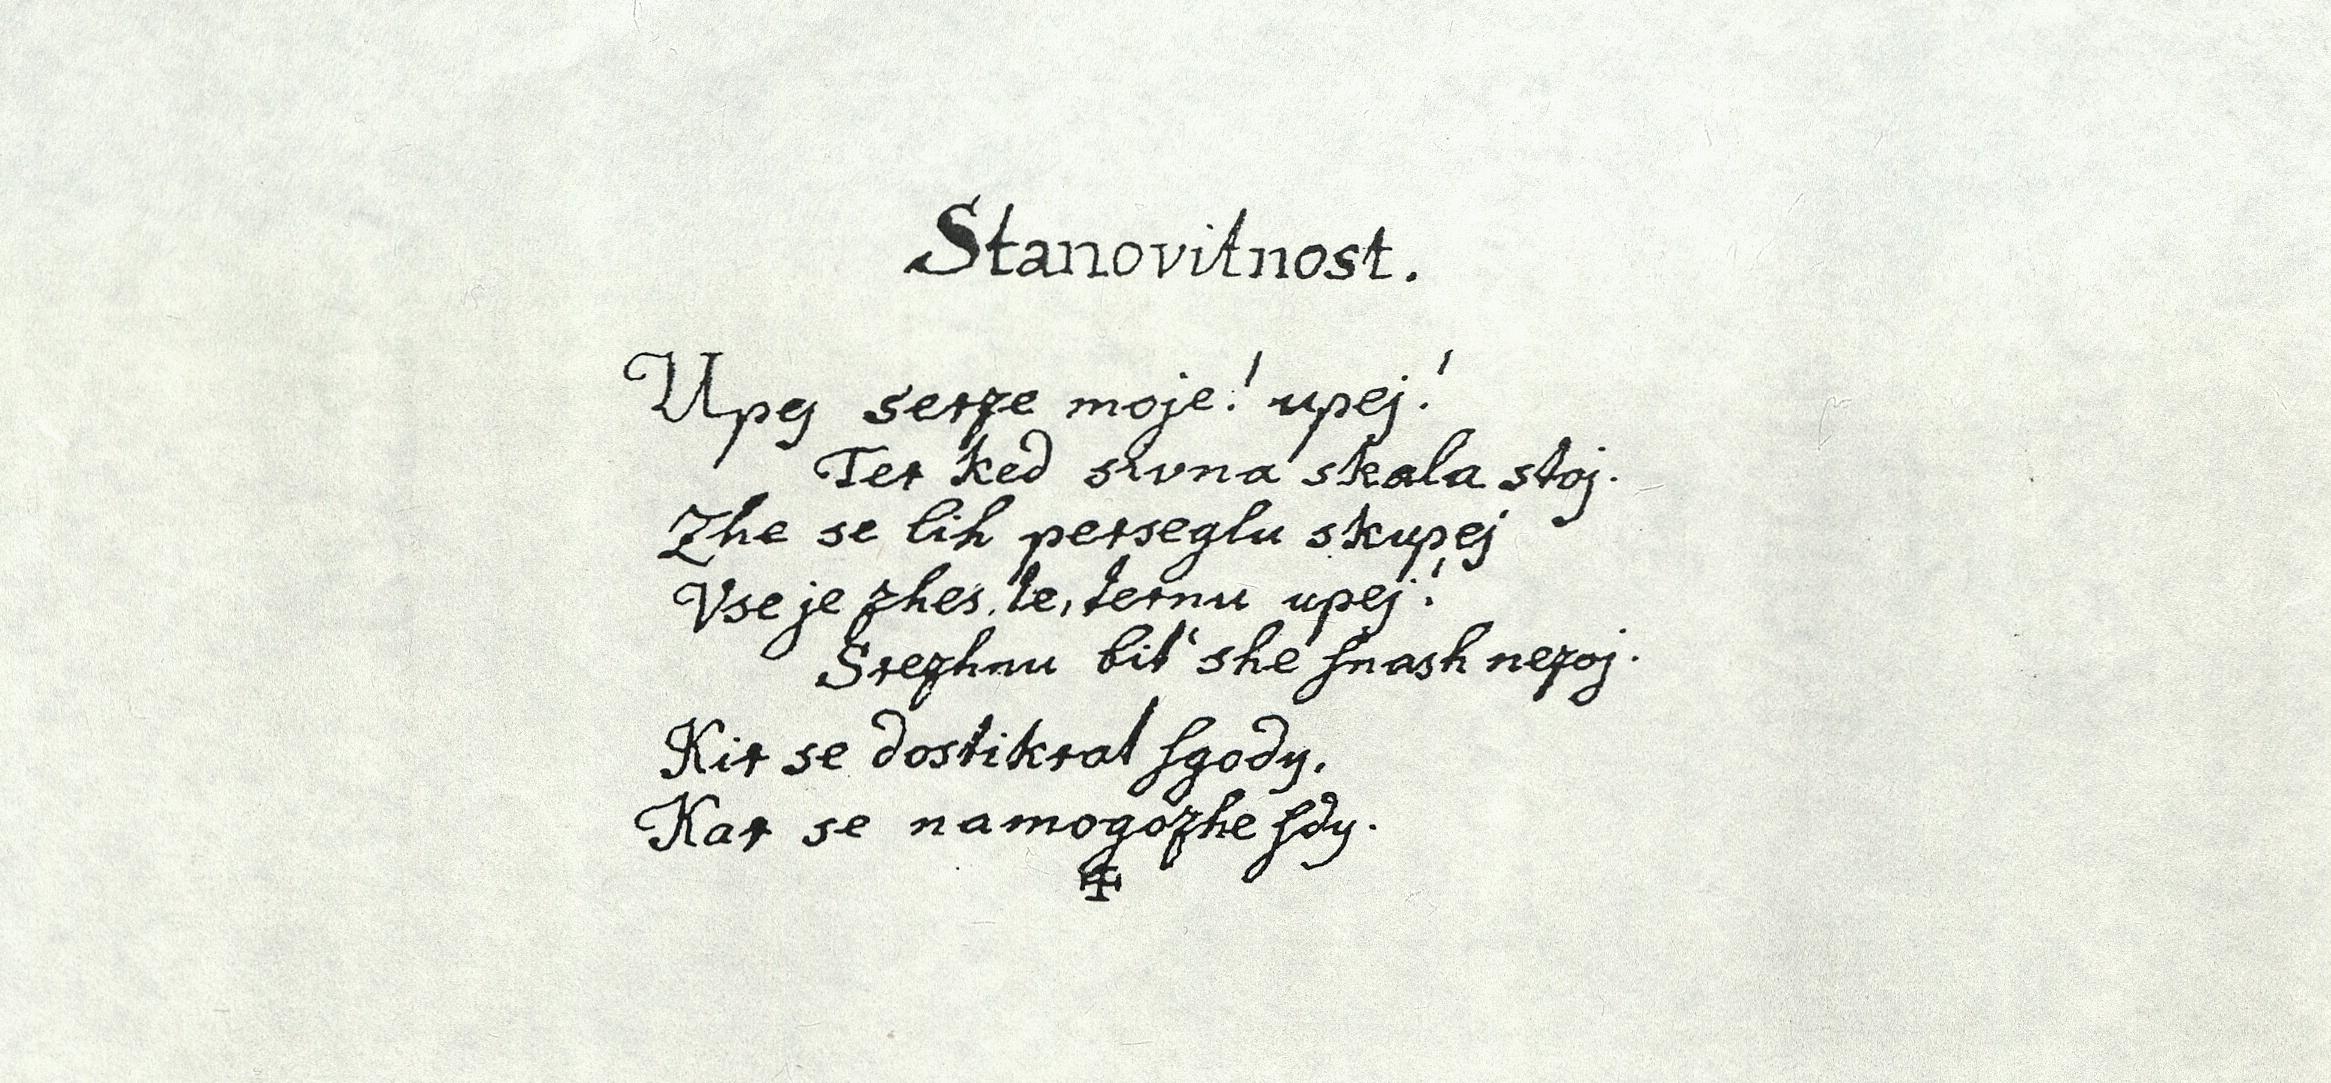 Stanovitnost.
Upej serze moje! upej!
Ter ked sivna skala stoj.
Zhe se lih perseglu skupej
Vse je zhes te, ternu upej!
Srezhnu bit' she ſnash nezoj.
Kir se dostikrat ſgody.
Kar se namogozhe ſdy.